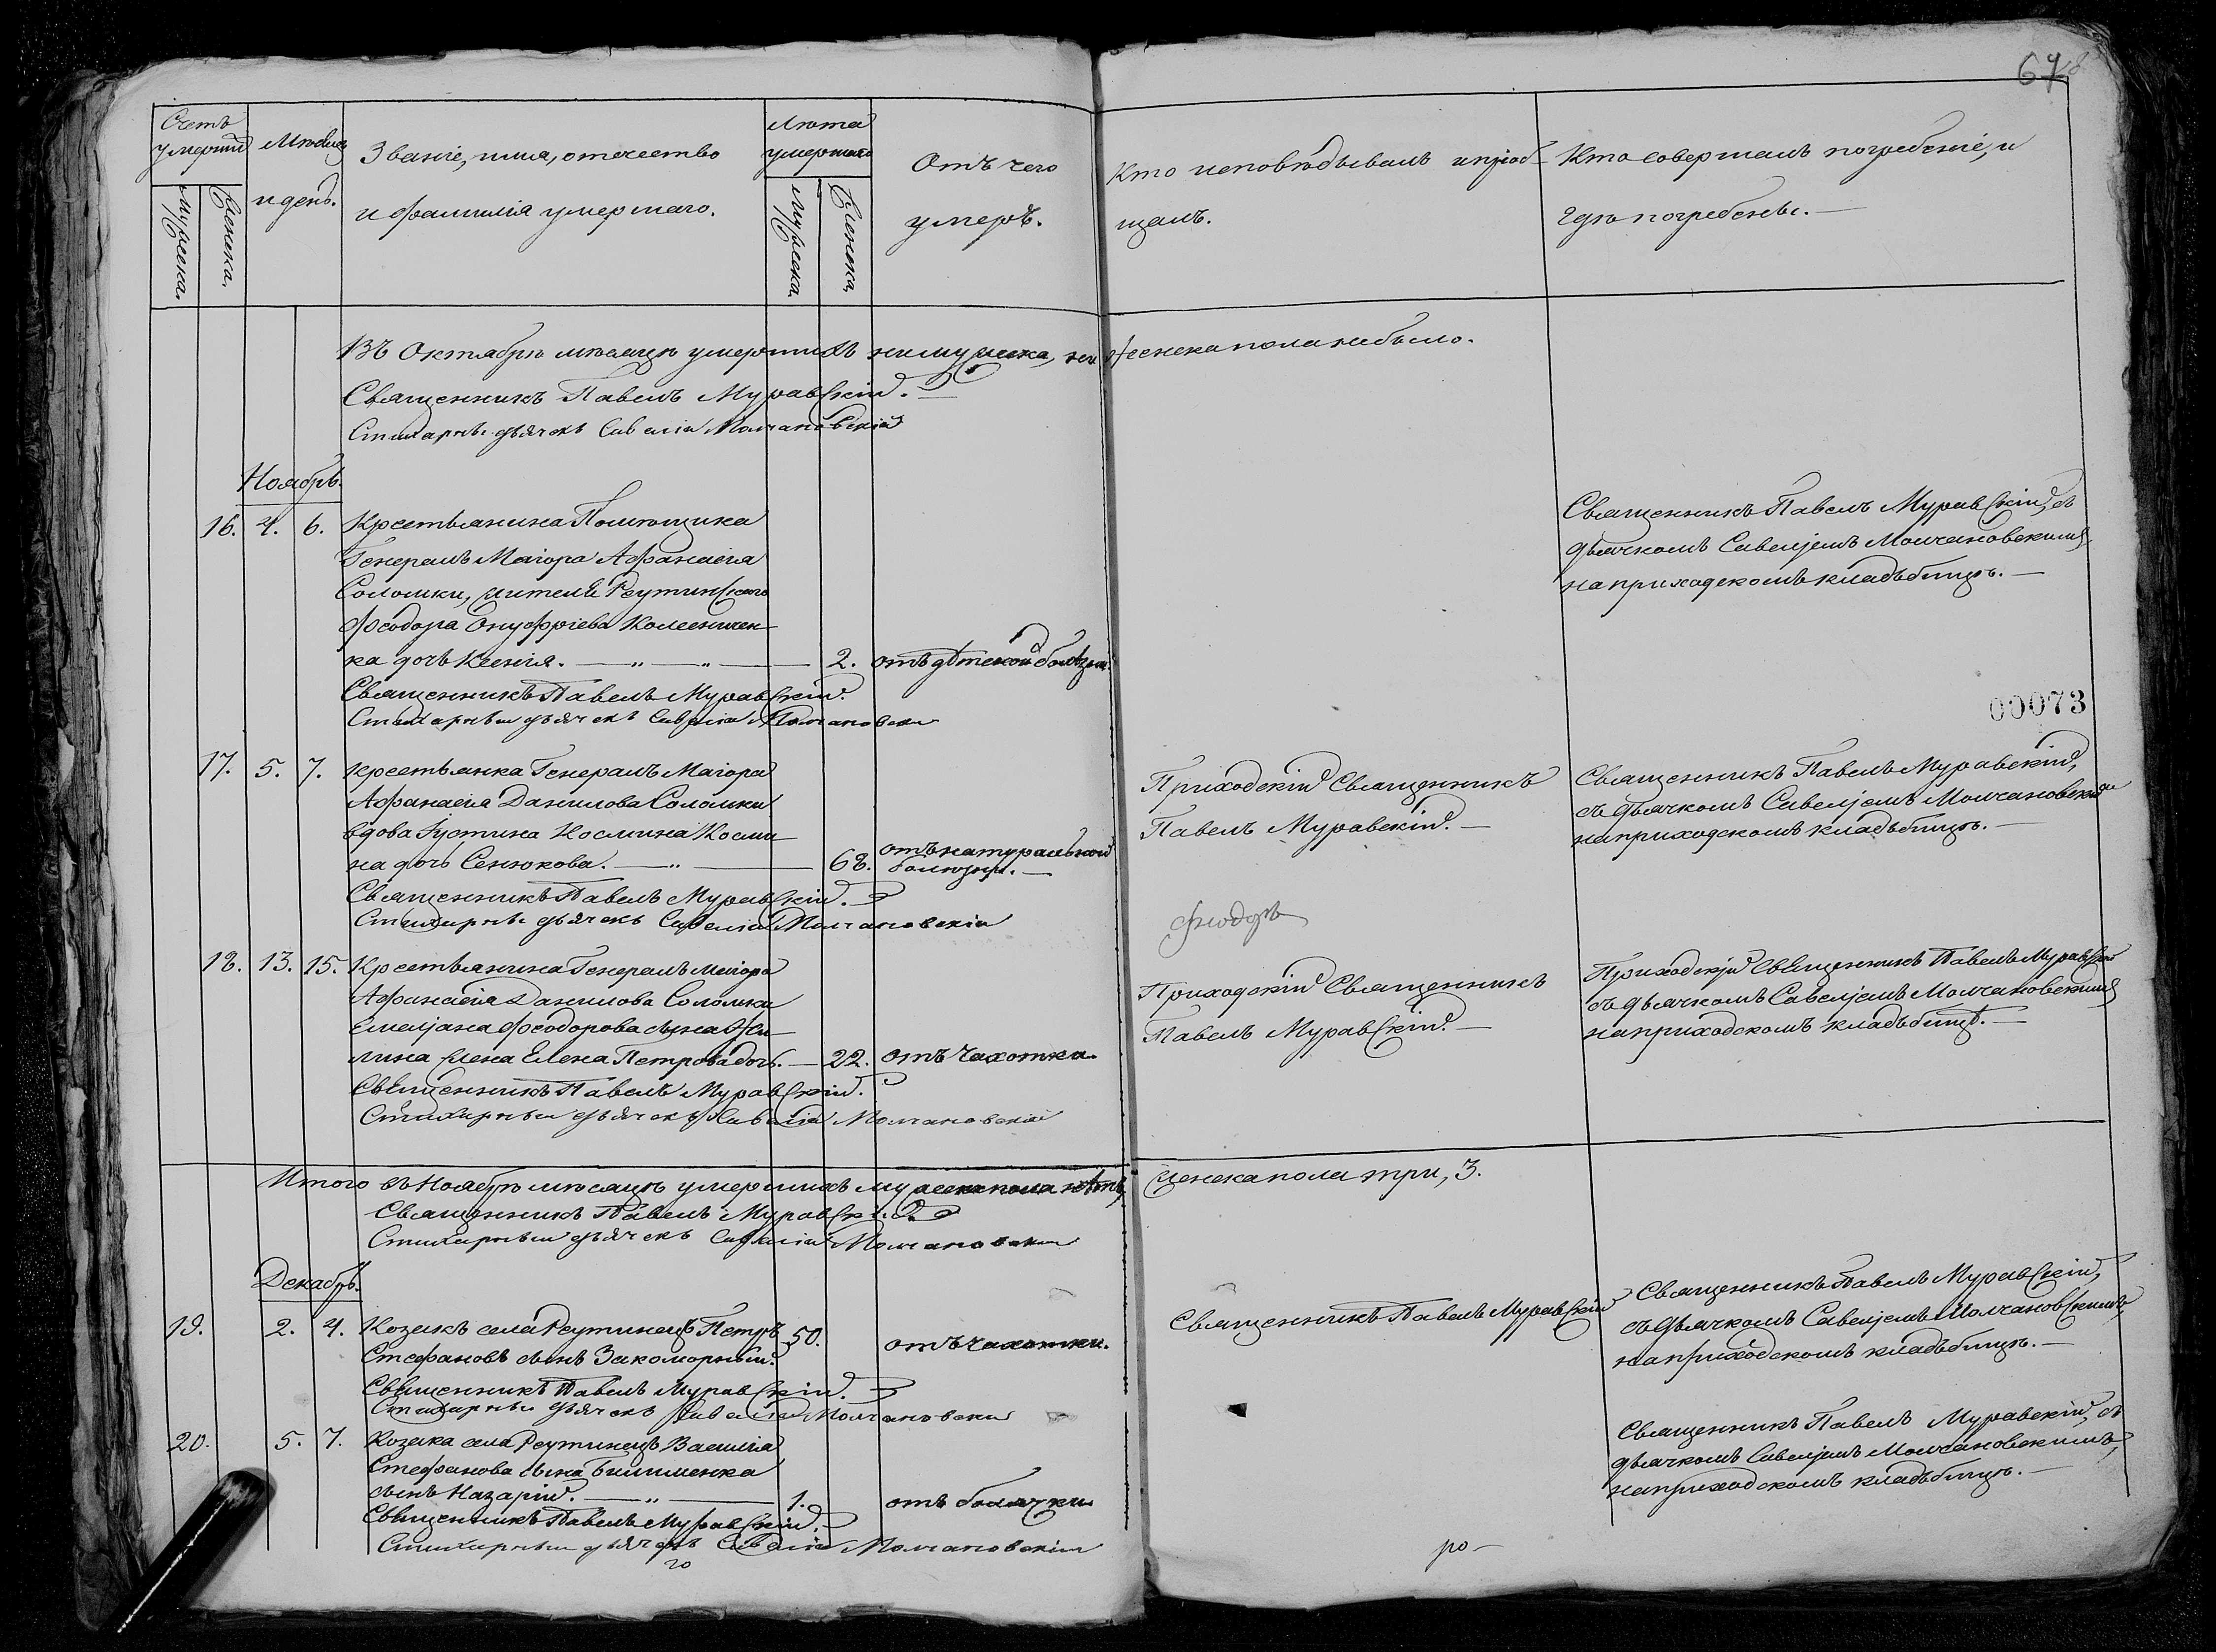 67
Счетъ умершихъ
Мужеска.
Женска.
Мѣсяцъ и день.
Званіе, имя, отечество и фамилія умершаго.
Лѣта умершаго
Мужеска.
Женска.
Отъ чего умеръ.
Кто исповѣдывалъ и пріобщалъ.
Кто совершалъ погребеніе, и гдѣ погребены. —
Въ Октябрѣ мѣсяцѣ умершихъ ни мужеска, ни женска пола небыло.
Священникъ Павелъ Муравскій.
Стихарный дьячекъ Савелій Молчановскій
Ноябрь.
16. 4. 6. Крестьянина Помѣщика
Генералъ Маіора Афанасія
Соломки, жителя Реутинскаго
Феодора Онуфріева Колесничен-
ка дочь Ксенія. — 2. отъ дѣтской болѣзни.
Священникъ Павелъ Муравскій, съ
дьячкомъ Савеліемъ Молчановскимъ,
на приходскомъ кладьбищѣ. —
Священникъ Павелъ Муравскій.
Стихарный дьячекъ Савелій Молчановскій
00073
17. 5. 7. Крестьянка Генералъ Маіора
Афанасія Данилова Соломки
вдова Іустина Космина Косми-
на дочь Сенюкова. — 68. отъ натуральной
болѣзни. —
Приходскій Священникъ
Павелъ Муравскій. —
Священникъ Павелъ Муравскій,
съ дьячкомъ Савеліемъ Молчановскимъ
на приходскомъ кладьбищѣ. —
Священникъ Павелъ Муравскій.
Стихарный дьячекъ Савелій Молчановскій
18. 13. 15. Крестьянина Генералъ Маіора
Афанасія Данилова Соломки
Емеліана Феодорова сына
жена Елена Петрова дочь. — 22. отъ чахотки.
Приходскій Священникъ
Павелъ Муравскій. —
Приходскій Священникъ Павелъ Муравскій
съ дьячкомъ Савеліемъ Молчановскимъ
на приходскомъ кладьбищѣ. —
Священникъ Павелъ Муравскій.
Стихарный дьячекъ Савелій Молчановскій
Итого въ Ноябрѣ мѣсяцѣ умершихъ мужеска пола нѣтъ, женска пола три, 3.
Священникъ Павелъ Муравскій
Стихарный дьячекъ Савелій Молчановскій
Декабрь.
19. 2. 4. Козакъ села Реутинецъ Петръ 50. отъ чахотки.
Стефановъ сынъ Закоморный.
Священникъ Павелъ Муравскій
Священникъ Павелъ Муравскій,
съ дьячкомъ Савеліемъ Молчановскимъ,
на приходскомъ кладьбищѣ. —
Священникъ Павелъ Муравскій.
Стихарный дьячекъ Савелій Молчановскій
20. 5. 7. Козака села Реутинецъ Василія
Стефанова сына
сынъ Назарій. — 1. отъ болячки
Священникъ Павелъ Муравскій, съ
дьячкомъ Савеліемъ Молчановскимъ,
на приходскомъ кладьбищѣ. —
Священникъ Павелъ Муравскій.
Стихарный дьячекъ Савелій Молчановскій
го
ро —